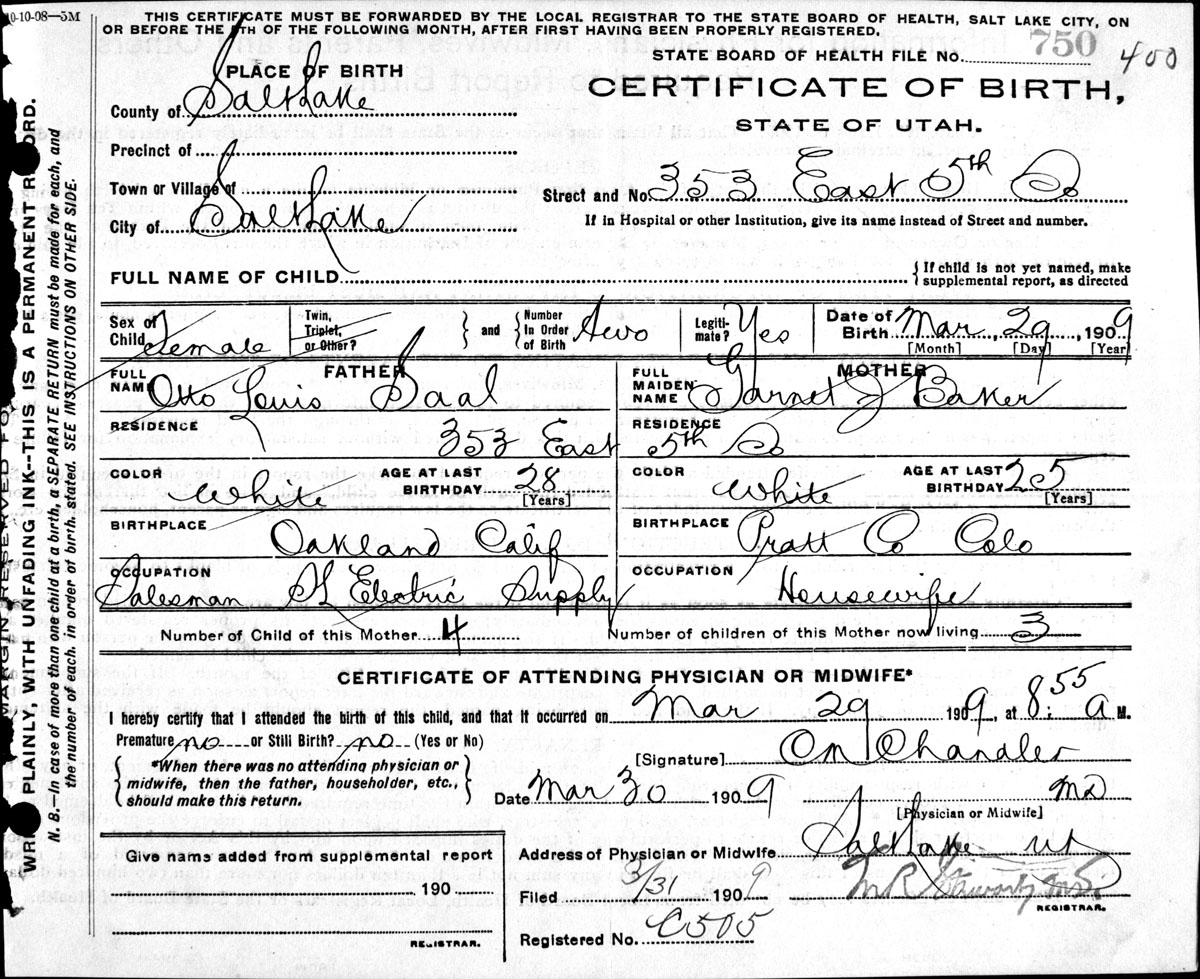 10-10-08—5M
THIS CERTIFICATE MUST BE FORWARDED BY THE LOCAL REGISTRAR TO THE STATE BOARD OF HEALTH, SALT LAKE CITY, ON
OR BEFORE THE 5TH OF THE FOLLOWING MONTH, AFTER FIRST HAVING BEEN PROPERLY REGISTERED.
STATE BOARD OF HEALTH FILE NO. 750 400
PLACE OF BIRTH
CERTIFICATE OF BIRTH,
STATE OF UTAH.
County of Salt Lake
Precinct of
Town or Village of
Street and No. 353 East 5th So
City of Salt Lake
If in Hospital or other Institution, give its name instead of Street and number.
FULL NAME OF CHILD
{ If child is not yet named, make
supplemental report, as directed
Sex of Child Female
Twin, Triplet, or Other?
} and { Number In Order of Birth Two
Legitimate? Yes
Date of Birth Mar 29, 1909
[Month] [Day] [Year]
FATHER
FULL NAME Otto Louis Saal
MOTHER
FULL MAIDEN NAME Garnet J Baker
RESIDENCE 353 East
RESIDENCE 5th So
COLOR White
AGE AT LAST BIRTHDAY 28 [Years]
COLOR White
AGE AT LAST BIRTHDAY 25 [Years]
BIRTHPLACE Oakland Calif
BIRTHPLACE Pratt Co Colo
OCCUPATION Salesman SL Electric Supply
OCCUPATION Housewife
Number of Child of this Mother 4
Number of children of this Mother now living 3
CERTIFICATE OF ATTENDING PHYSICIAN OR MIDWIFE*
I hereby certify that I attended the birth of this child, and that it occurred on Mar 29 1909, at 8:55 A M.
Premature no or Still Birth? no (Yes or No)
[Signature] O M Chandler
{ *When there was no attending physician or
midwife, then the father, householder, etc.,
should make this return. }
Date Mar 30 1909 MD
[Physician or Midwife]
Give name added from supplemental report
190
REGISTRAR.
Address of Physician or Midwife Salt Lake Ut
Filed 3/31 1909
REGISTRAR.
Registered No. C505
MARGIN RESERVED FOR
WRITE PLAINLY, WITH UNFADING INK--THIS IS A PERMANENT RECORD.
N. B.—In case of more than one child at a birth, a SEPARATE RETURN must be made for each, and
the number of each, in order of birth, stated. SEE INSTRUCTIONS ON OTHER SIDE.